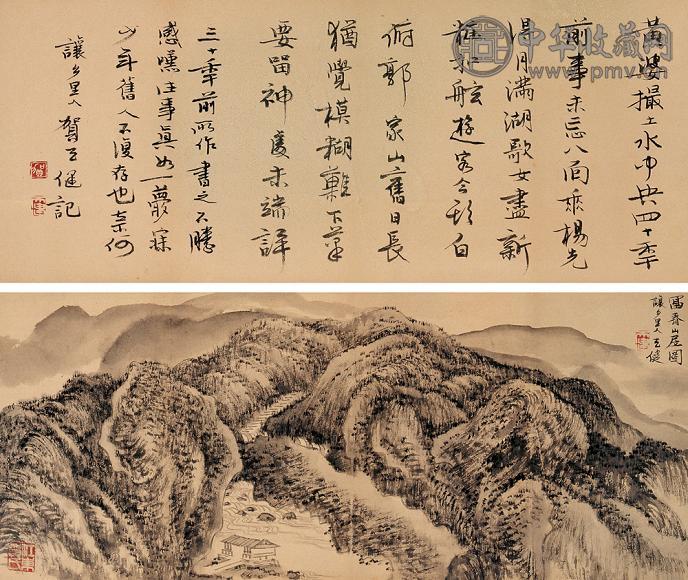 黄婆撮土水中央四十年
前事未忘八面垂楊先
得月滿湖歌女盡新
粧扣舷遊客今頭白
俯郭家山舊日長
猶覺模糊難下筆
要留神處未端詳
三十年前所作書之不勝
感嘆往事真如一夢寐
少年舊人不復存也奈何
讓鄉里人賀天健記
中华收藏网
www.pmv.cn
富春山居圖
讓鄉里人天健